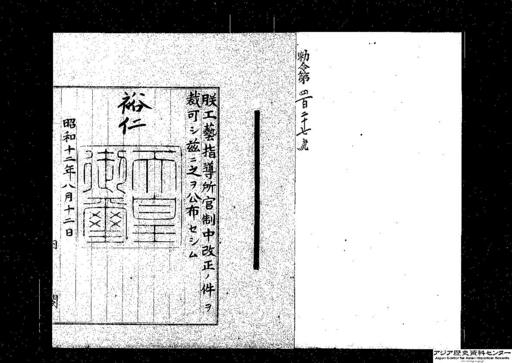 勅令第四百二十七號
朕工藝指導所官制中改正ノ件ヲ
裁可シ茲ニ之ヲ公布セシム
裕仁
天皇
御璽
昭和十二年八月十二日
内閣
アジア歴史資料センター
Japan Center for Asian Historical Records